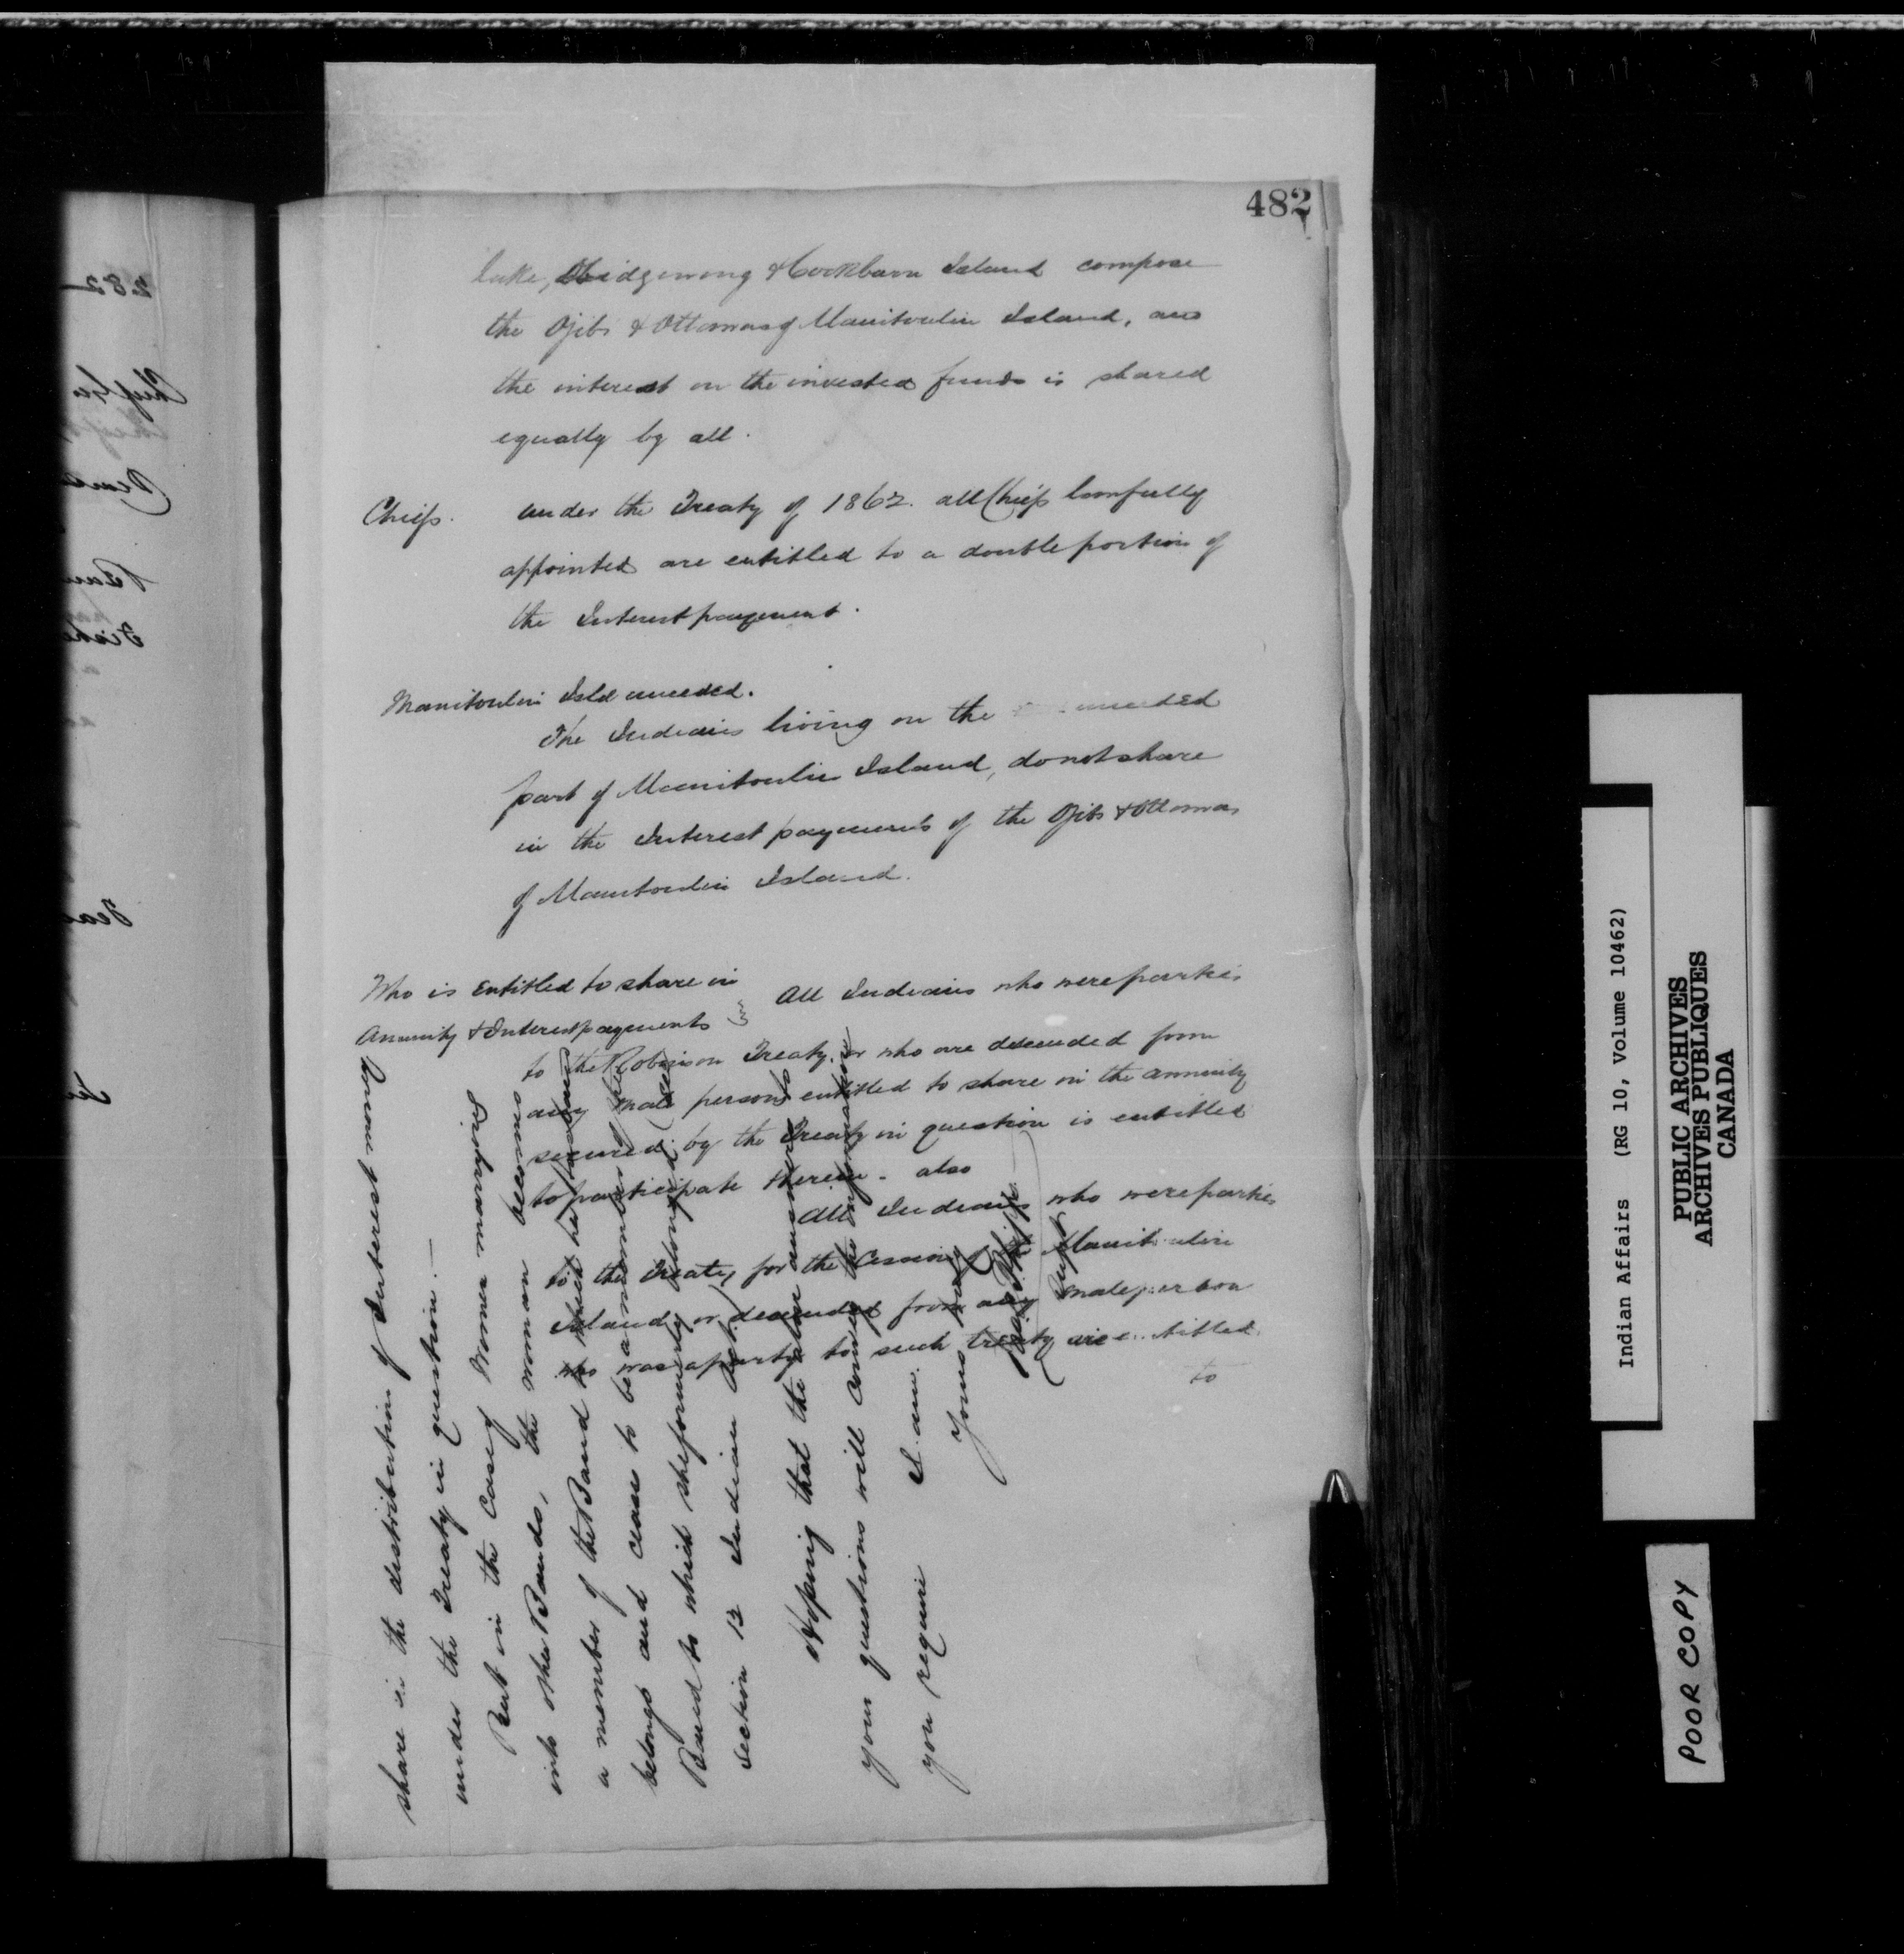 482
Lake, Obidgewong & Cockburn Island compose
the Ojibs & Ottawas of Manitoulin Island, and
the interest on the invested funds is shared
equally by all.
Chiefs. Under the Treaty of 1862. all Chiefs lawfully
appointed are entitled to a double portion of
the Interest payment.
Manitoulin Isld unceded.
The Indians living on the unceded
part of Manitoulin Island, do not share
in the Interest payments of the Ojibs & Ottawas
of Manitoulin Island.
Who is entitled to share in
Annuity & Interest payments } All Indians who were parties
to the Robinson Treaty, or who are descended from
any male person entitled to share in the annuity
secured by the Treaty in question is entitled
to participate therein - also
All Indians who were parties
to the Treaty for the Cession of Manitoulin
Island or descended from any male person
who was a party to such treaty are entitled
to
share in the distribution of Interest money
under the Treaty in question. —
But in the case of Women marrying
into other Bands, the woman becomes
a member of the Band to which her husband
belongs and ceases to be a member of the
Band to which she formerly belonged (see
Section 12 Indian Act.)
Hoping that the above answers to
your questions will convey the information
you require I am.
Yours truly
Supt
Indian Affairs (RG 10, Volume 10462)
PUBLIC ARCHIVES
ARCHIVES PUBLIQUES
CANADA
POOR COPY